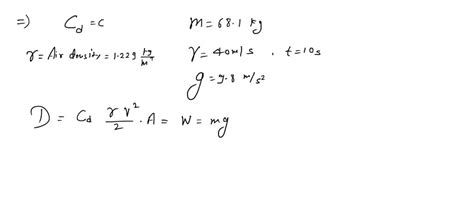 =) Cd = c m = 68.1 kg
γ = Air density = 1.229 kg/m³ V = 40m/s . t = 10s
g = 9.8 m/s²
D = Cd γ v²/2 . A = W = mg